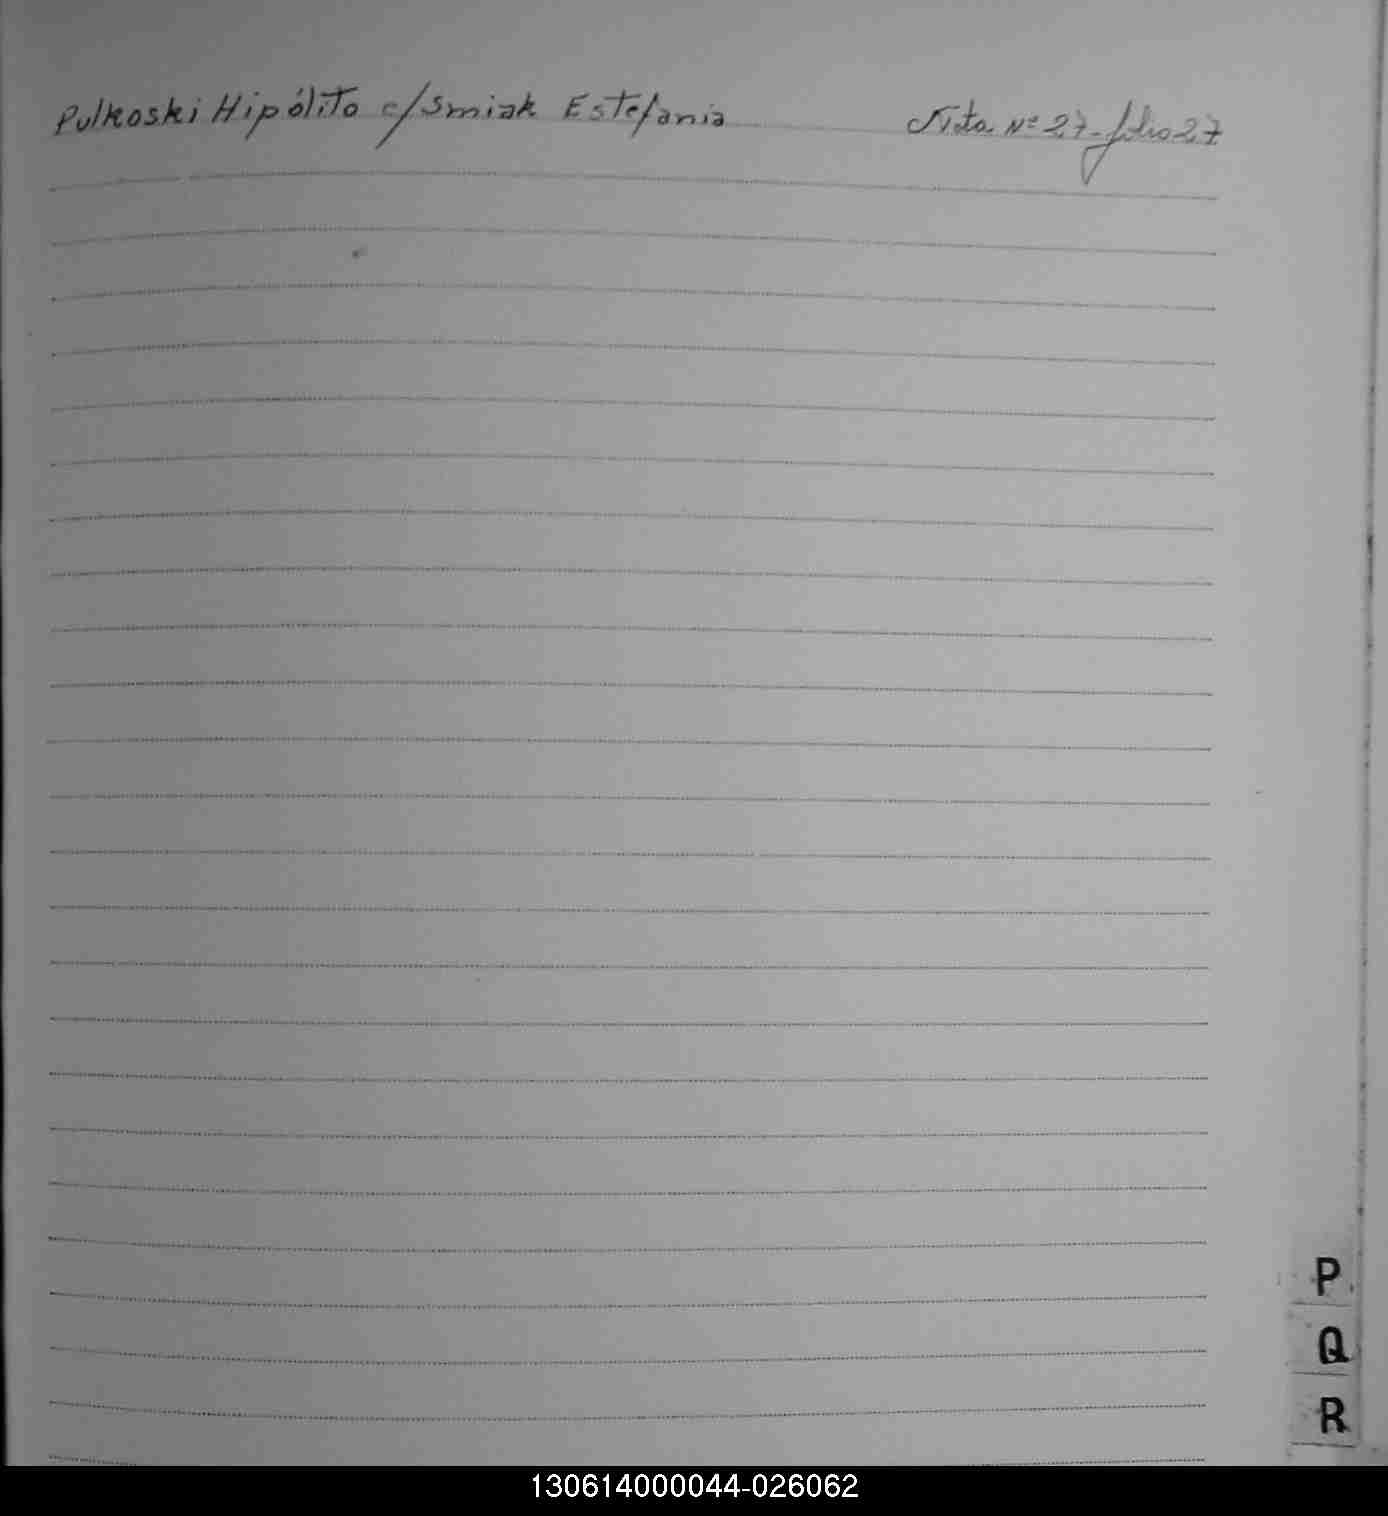 Pulkoski Hipólito c/Smiak Estefania Nota Nº 27-folio 27
P
Q
R
130614000044-026062